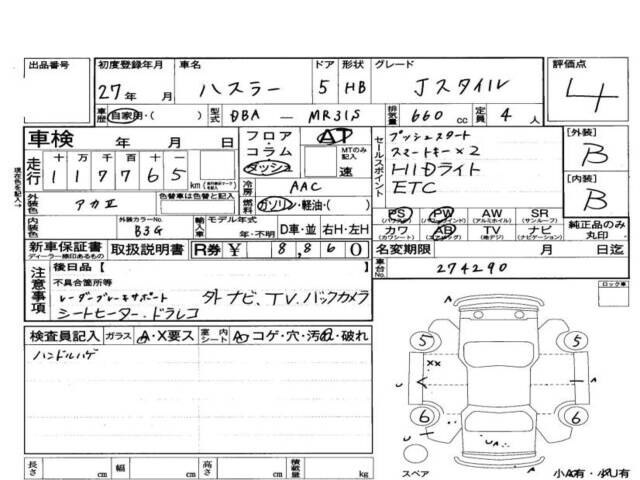 出品番号 初度登録年月 車名 ドア 形状 グレード 評価点
27年 月 ハスラー 5 HB Jスタイル 4
車歴 自家用・( ) 型式 DBA — MR31S 排気量 660 cc 定員 4 人
車検 年 月 日 フロア・コラム・ダッシュ AT セールスポイント プッシュスタート [外装]
MTのみ記入 速 スマートキー×2 B
走行 十 万 千 百 十 一 HIDライト
1 1 7 7 6 5 km 冷房 AAC ETC [内装]
現在色を記入→ 外装色 アカⅡ 色替車は色替と記入 燃料 ガソリン・軽油・( ) B
内装色 外装カラーNo. B3G 輸入車 モデル年式 年・不明 D車・並 右H・左H
PS (パワステ) PW (パワーウィンド) AW (アルミホイル) SR (サンルーフ) 純正品のみ丸印
カワ (カワシート) AB (エアバッグ) TV (地デジ) ナビ (ナビゲーション)
新車保証書 ディーラー捺印あるもの 取扱説明書 R券 ¥ 8,860 名変期限 月 日迄
注意事項 後日品【 】 車台No. 274290
不具合箇所等
レーダーブレーキサポート 外ナビ、TV、バックカメラ
シートヒーター、ドラレコ
ロック車
検査員記入 ガラス A・X要ス 室内シート A・コゲ・穴・汚れ・破れ
ハンドルハゲ
5 5
××
U A
6 6
UA
A
長さ cm 幅 cm 高さ cm 積載量 kg スペア 小A有・小U有